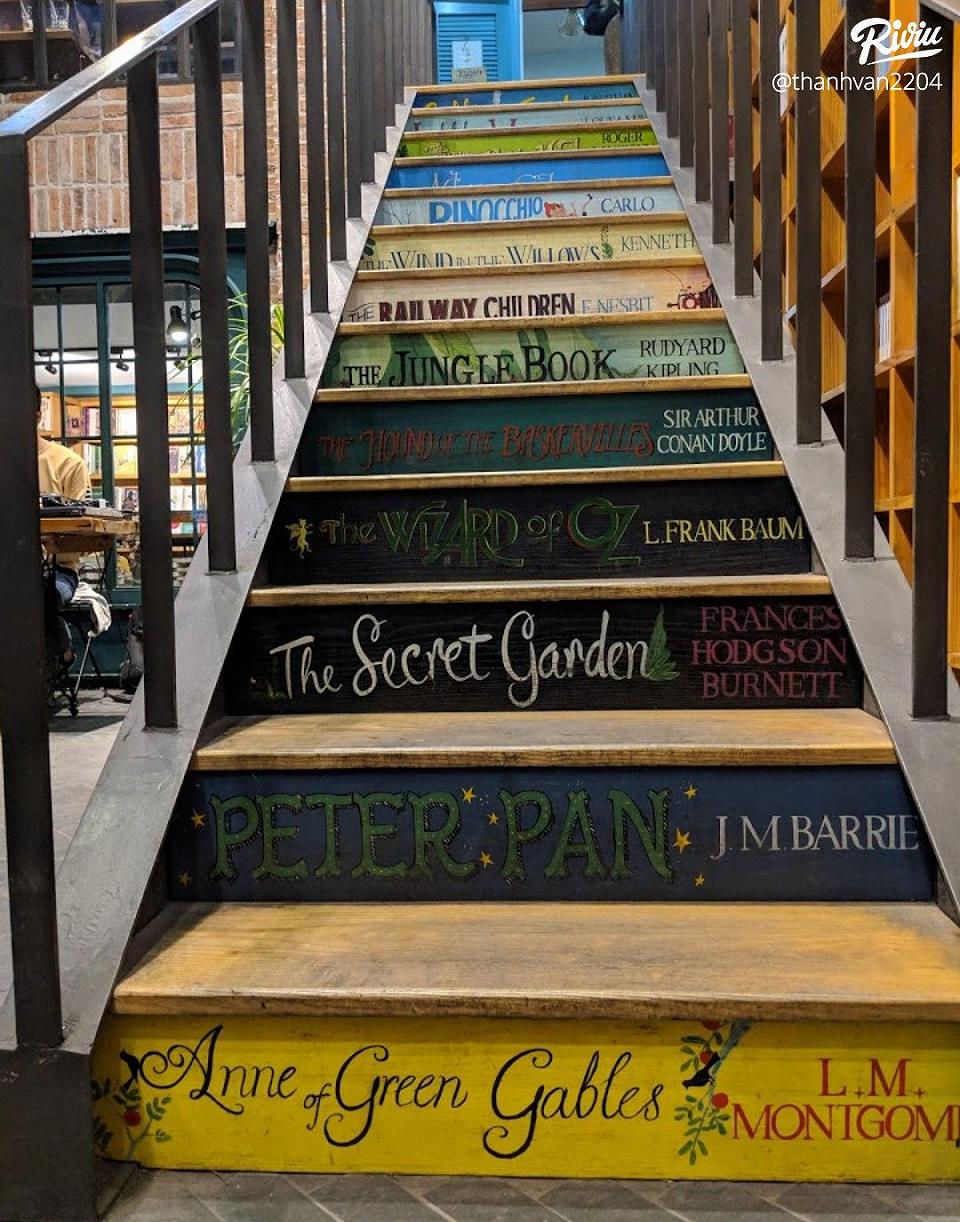 Riviu
@thanhvan2204
ROGER
PINOCCHIO CARLO
THE WIND IN THE WILLOWS KENNETH
THE RAILWAY CHILDREN E. NESBIT
THE JUNGLE BOOK RUDYARD KIPLING
THE HOUND OF THE BASKERVILLES SIR ARTHUR CONAN DOYLE
The WIZARD of OZ L. FRANK BAUM
The Secret Garden FRANCES HODGSON BURNETT
PETER PAN J. M. BARRIE
Anne of Green Gables L.M. MONTGOM